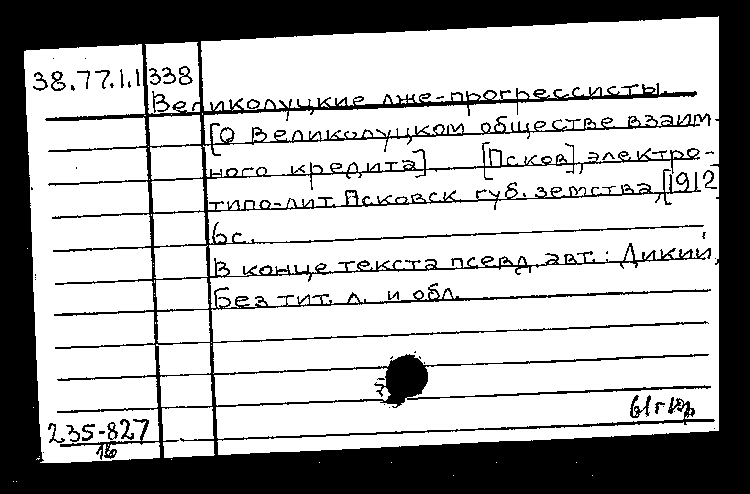 38.77.1.1 338
Великолуцкие лже-прогрессисты.
[О Великолуцком обществе взаим-
ного кредита]. [Псков], электро-
типо-лит. Псковск. губ. земства, [1912]
6с.
В конце текста псевд. авт.: Дикий,
Без тит. л. и обл.
235-827
16